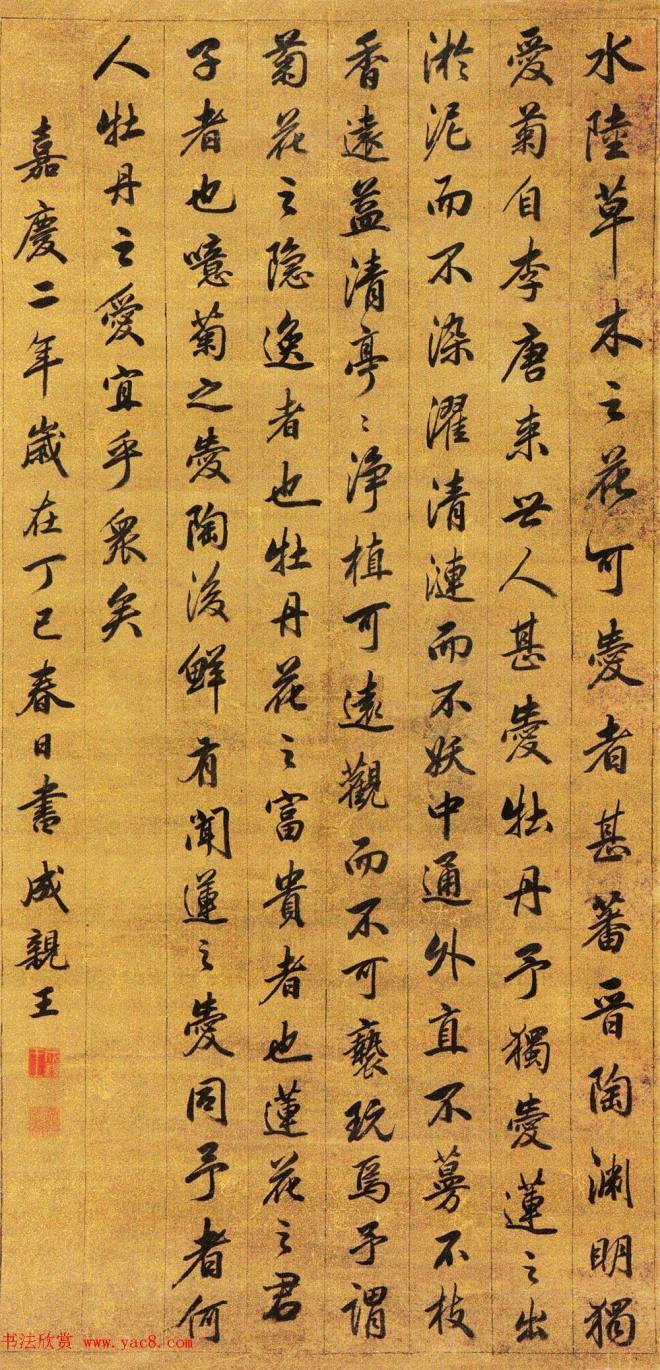 水陸草木之花可愛者甚蕃晉陶淵明獨
愛菊自李唐来世人甚愛牡丹予獨愛蓮之出
淤泥而不染濯清漣而不妖中通外直不蔓不枝
香遠益清亭〻淨植可遠觀而不可褻玩焉予謂
菊花之隐逸者也牡丹花之富貴者也蓮花之君
子者也噫菊之愛陶後鮮有聞蓮之愛同予者何
人牡丹之愛宜乎衆矣
嘉慶二年歲在丁巳春日書成親王
书法欣赏 www.yac8.com